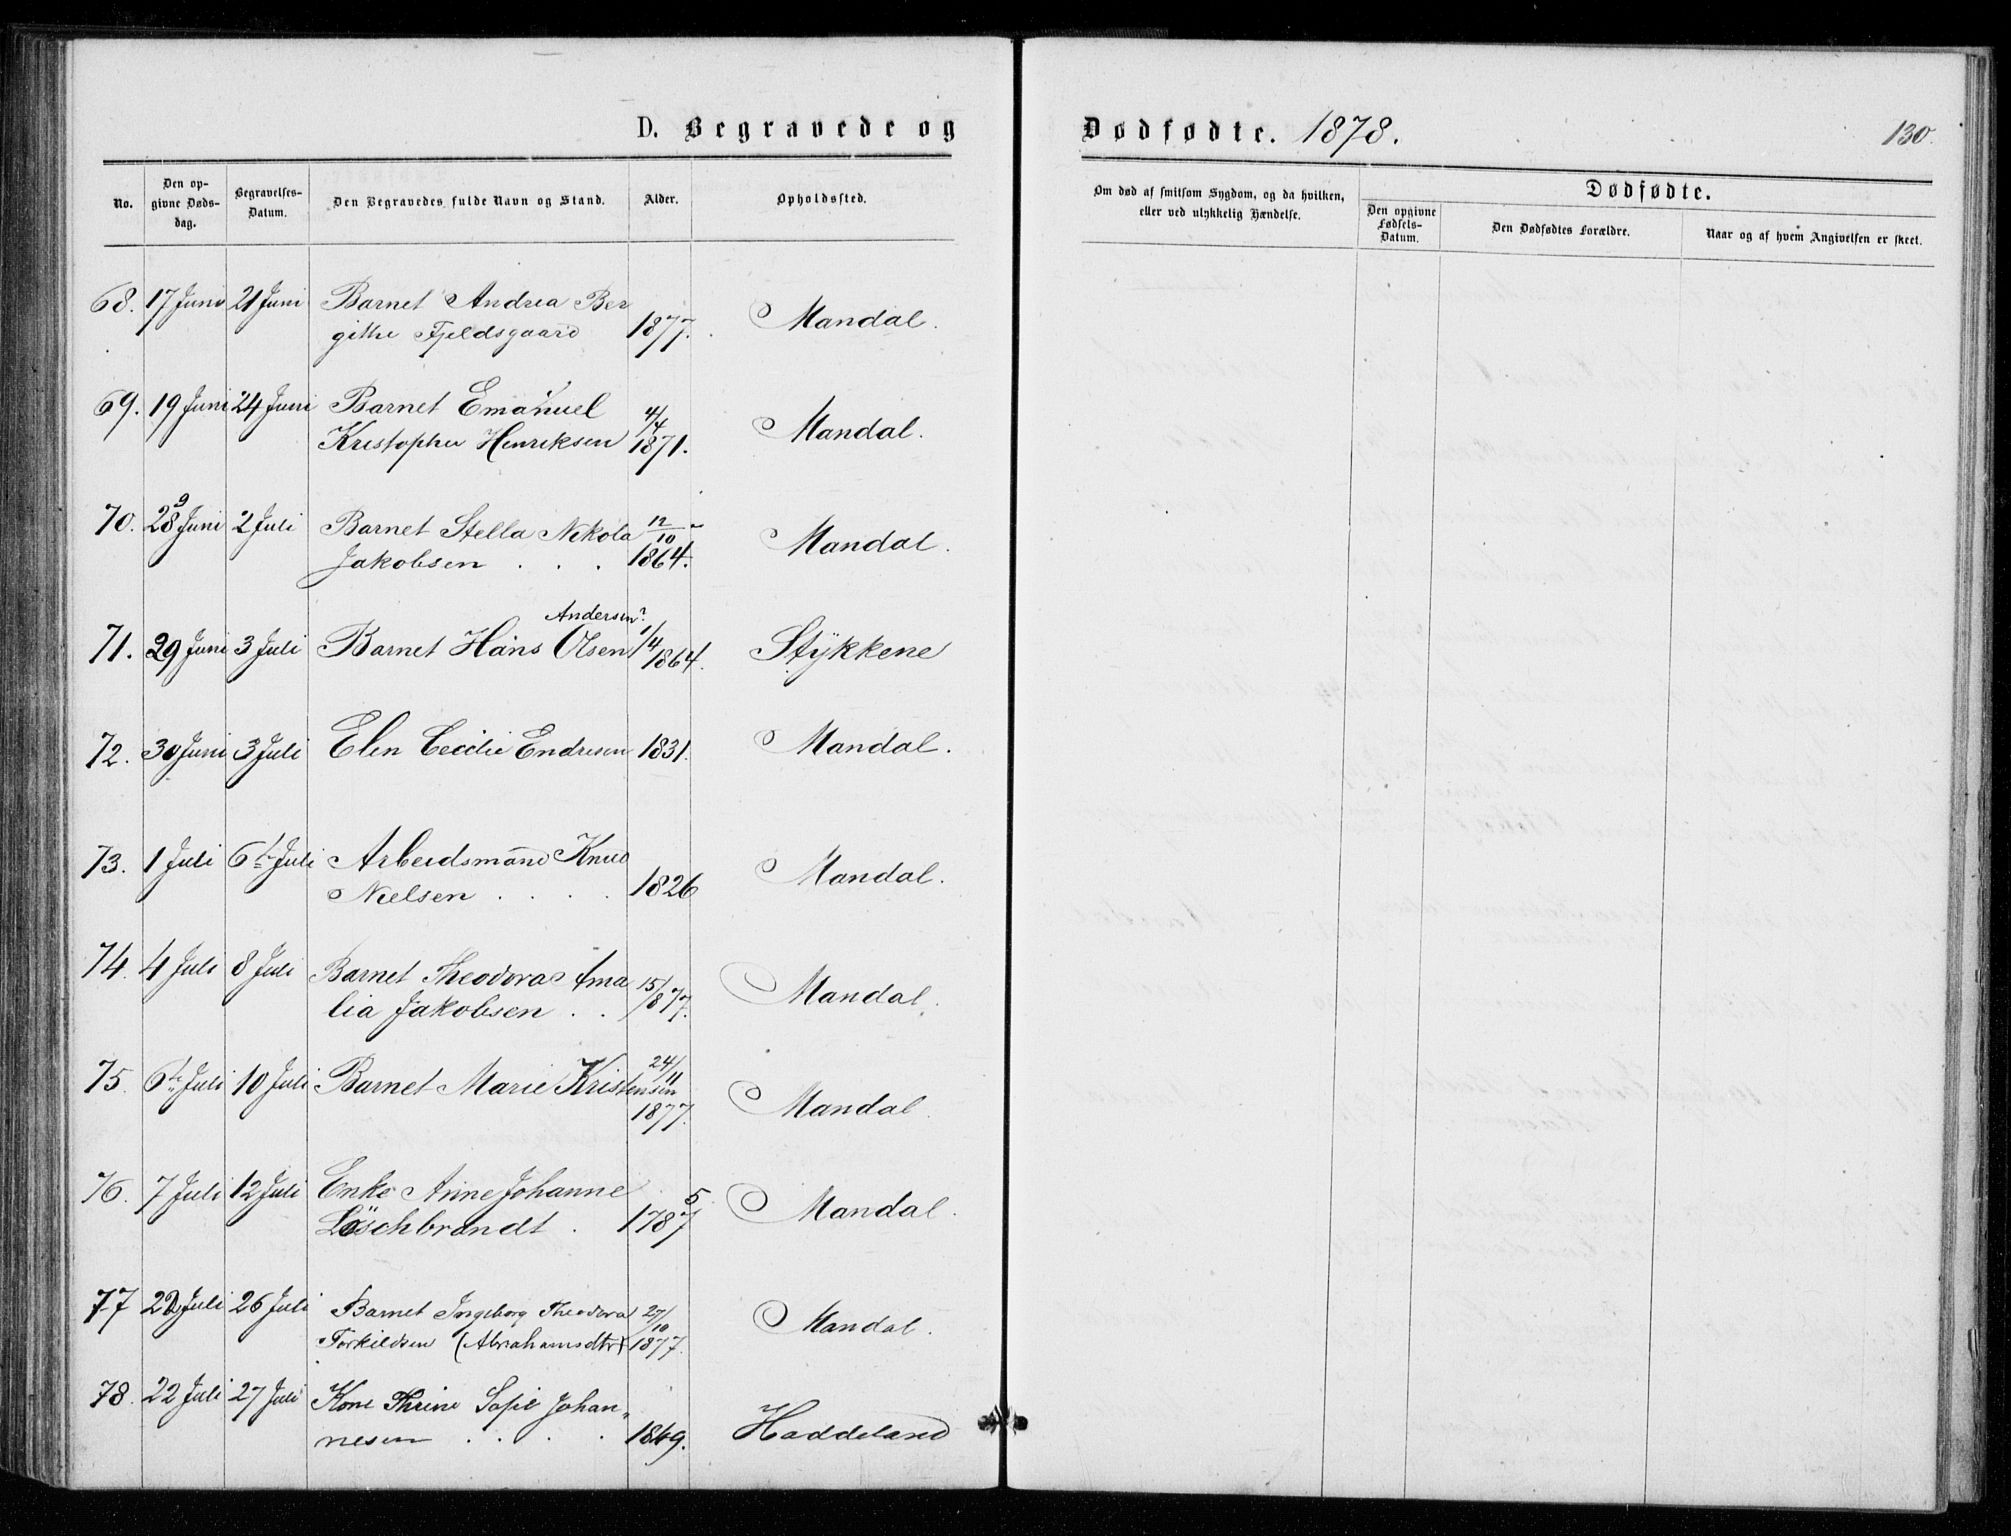 D. Begravede og
Dødfødte. 1878.
130.
No.
Den op-
givne Døds-
dag.
Begravelses-
Datum.
Den Begravedes fulde Navn og Stand.
Alder.
Opholdssted.
Om død af smitsom Sygdom, og da hvilken,
eller ved ulykkelig Hændelse.
Dødfødte.
Den opgivne
Fødsels-
Datum.
Den Dødfødtes Forældre.
Naar og af hvem Angivelsen er skeet.
68. 17 Juni 21 Juni Barnet Andrea Ber
githe Fjeldsgaard 1877. Mandal.
69. 19 Juni 24 Juni Barnet Emanuel 4/4
Kristopher Henriksen 1871. Mandal.
70. 28 9 Juni 2 Juli Barnet Stella Nikola 12/10 -
Jakobsen . . . 1864. Mandal.
Andersen?
71. 29 Juni 3 Juli Barnet Hans Olsen 1/4 1864. Stykkene
72. 30 Juni 3 Juli Elen Cecilie Endresen 1831. Mandal.
73. 1 Juli 6te Juli Arbeidsmand Knud
Nielsen . . . . 1826 Mandal.
74. 4 Juli 8 Juli Barnet Theodora Ama
lia Jakobsen . . 15/8 77. Mandal.
75. 6te Juli 10 Juli Barnet Marie Kristensen 24/11
1877. Mandal.
76. 7 Juli 12 Juli Enke Anne Johanne
Löschbrandt . 1787 5 Mandal.
77 22 Juli 26 Juli Barnet Ingeborg Theodora 27/10
Torkildsen (Abrahamsdtr) 1877. Mandal.
78. 22 Juli 27 Juli Kone Thrine Sofie Johan„
nesen . . . . 1849. Haddeland